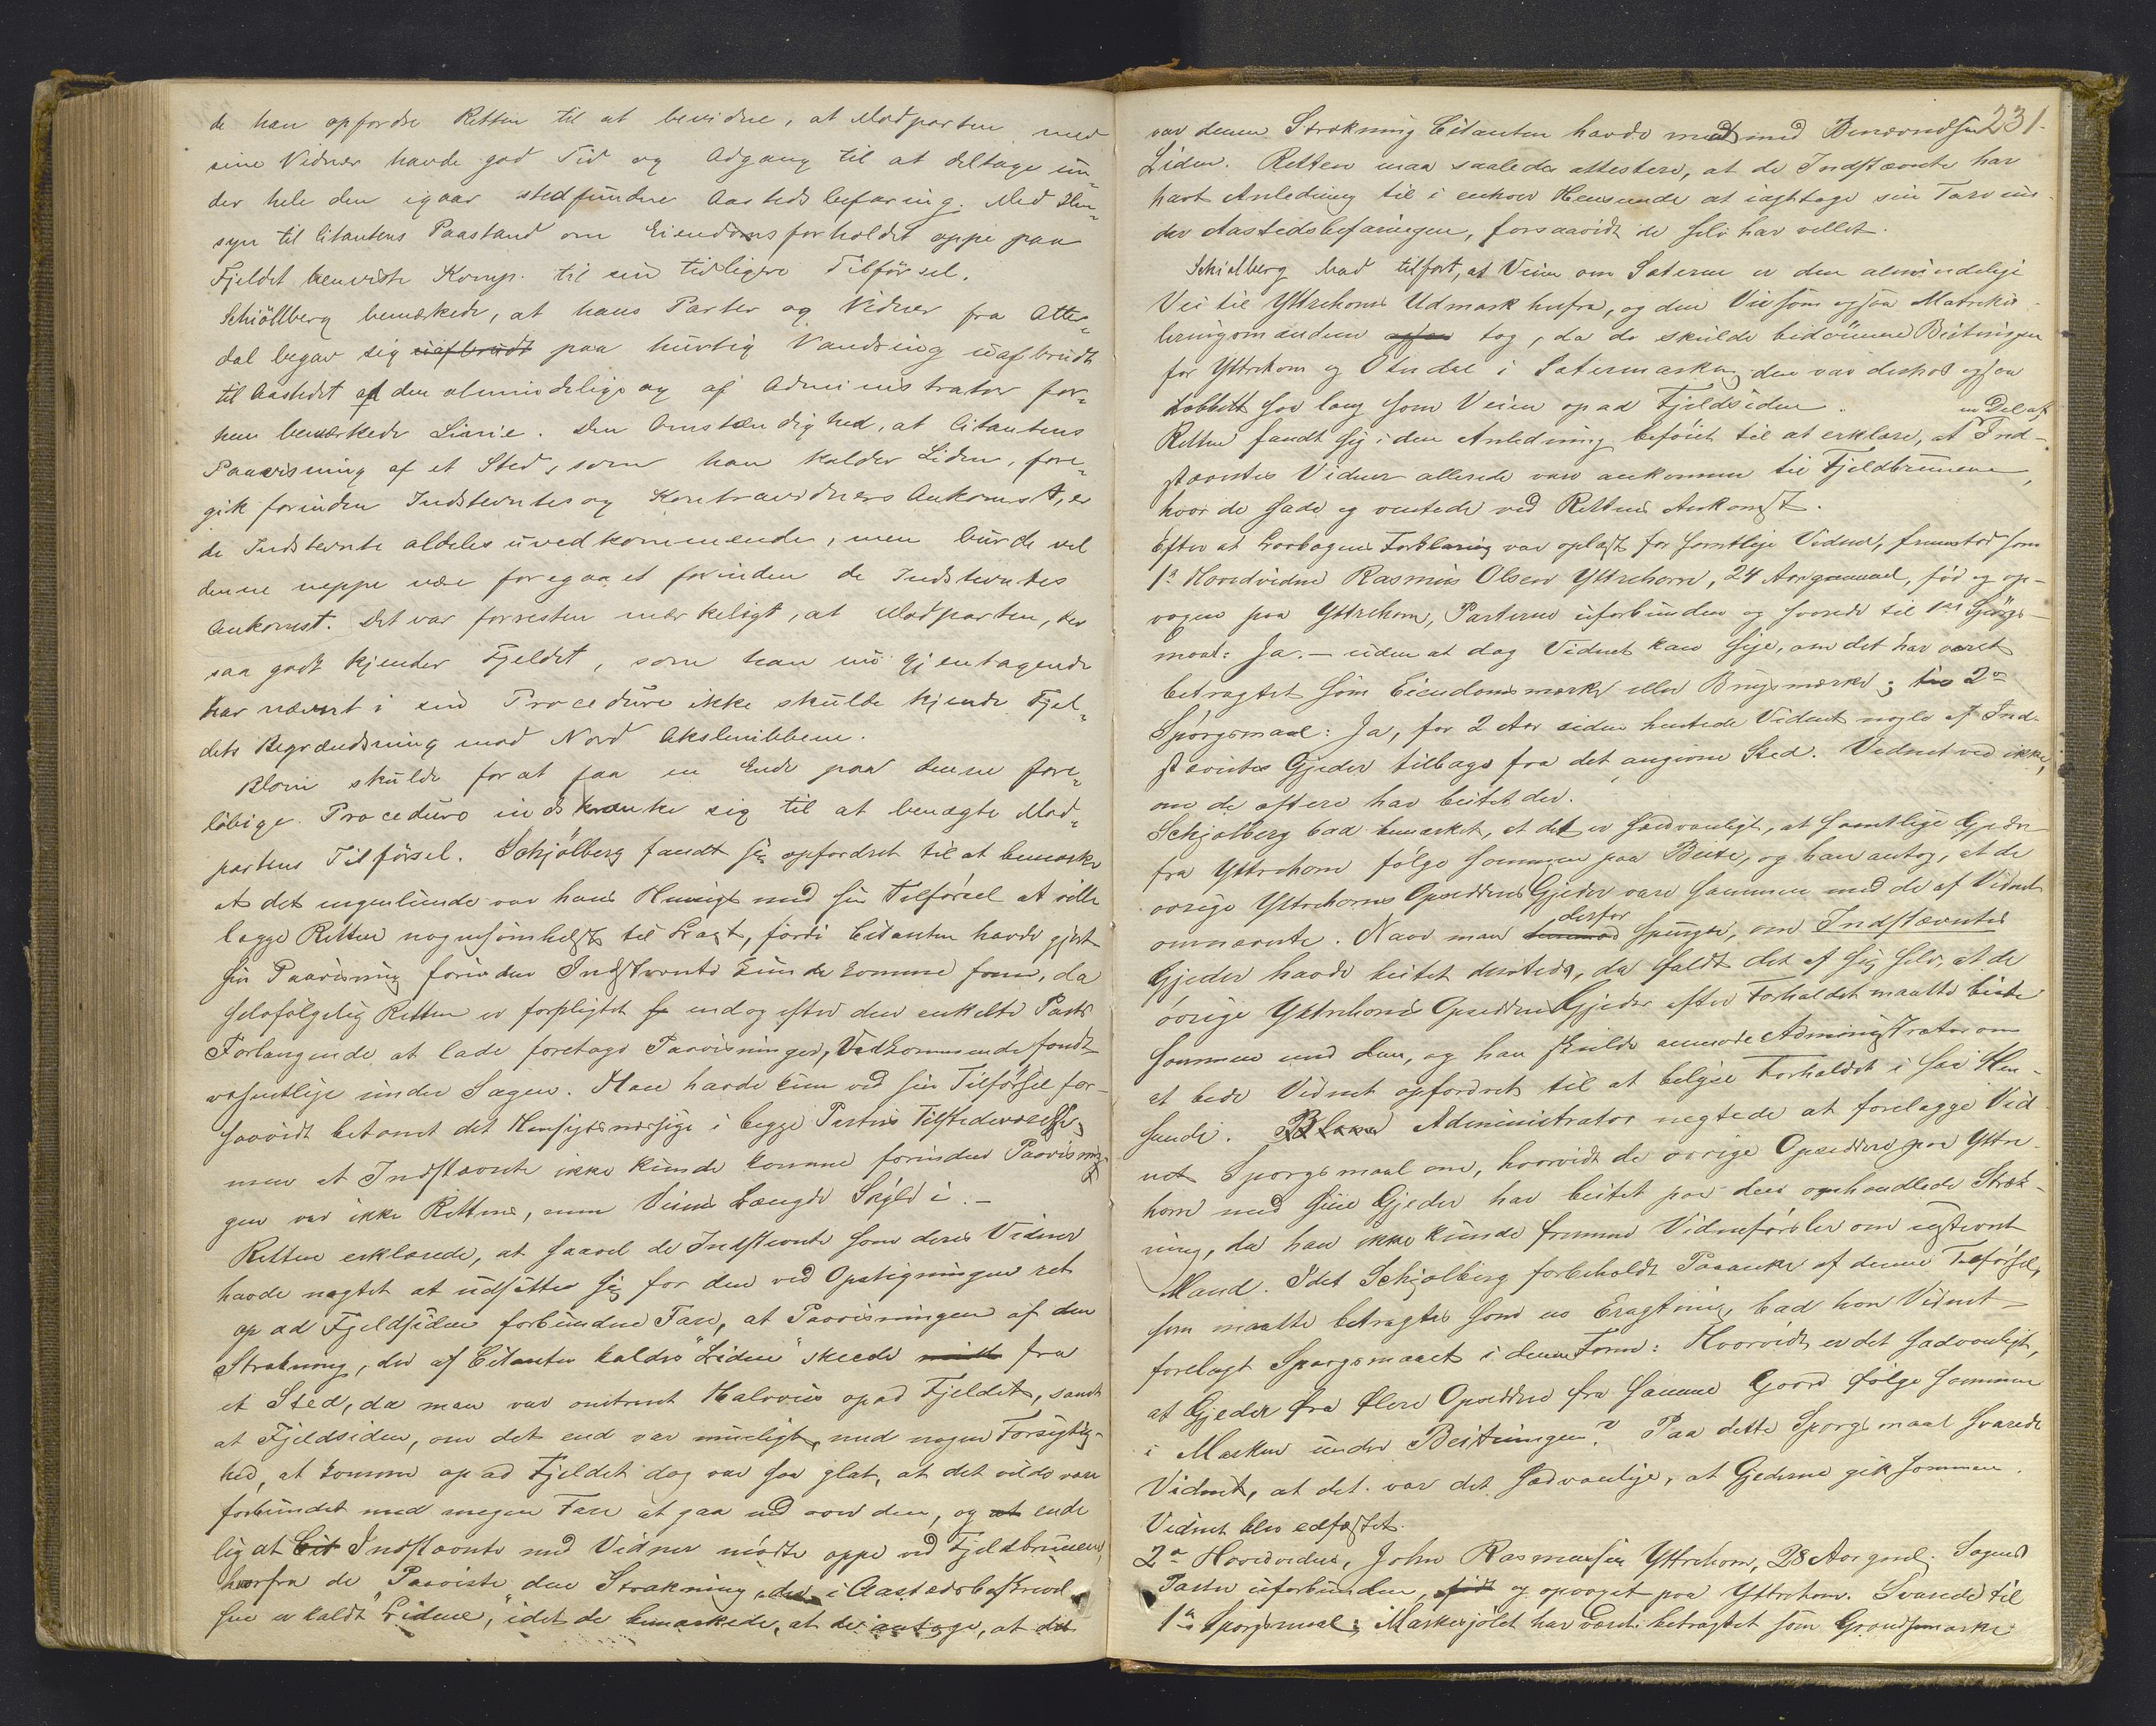 de han opfordre Retten til at bevidne, at Modparten med
sine Vidner havde god Tid og Adgang til at deltage un-
der hele den igaar stedfundne Aastedsbefaring. Med Hen-
syn til Citantens Paastand om Eiendomsforholdet oppe paa
Fjeldet henviste Komp. til sin tidligere Tilførsel.
Schiöllberg bemærkede, at hans Parter og Vidner fra Otter-
dal begav sig uafbrudt paa hurtig Vandring uafbrudt
til Aastedet af den almindelige og af Administrator for-
hen bemærkede Linie. Den Omstændighed, at Citantens
Paavisning af et Sted, som han kalder Liden, fore-
gik forinden Indstevntes og Kontravidners Ankomst, er
de Indstevnte aldeles uvedkommende, men burde vel
denne neppe være foregaaet forinden de Indstevntes
Ankomst. Det var forresten mærkeligt, at Modparten, der
saa godt kjender Fjeldet, som han nu gjentagende
har nævnt i sin Procedure ikke skulde kjende Fjel-
dets Begrændsning mod Nord Akslenibbene.
Blom skulde for at faa en Ende paa denne fore-
løbige Procedure indskrænke sig til at benægte Mod-
partens Tilførsel. Schjölberg fandt sig opfordret til at bemærke
at det ingenlunde var hans Hensigt med sin Tilførsel at ville
lægge Retten nogensomhelst til Last, fordi Citanten havde gjort
sin Paavisning forinden Indstevnte kunde komme frem, da
selvfølgelig Retten er forpligtet endog efter den enkelte Parts
Forlangende at lade foretage Paavisninger, Vedkommende fandt
væsentlige under Sagen. Man havde kun ved sin Tilførsel for-
saavidt betonet det Hensigtsmæssige i begge Parters Tilstedeværelse,
men at Indstævnte ikke kunde komme forinden Paavisnin-
gen var ikke Rettens, men Veiens Længde Skyld i.
Retten erklærede, at saavel de Indstevnte som deres Vidner
havde nægtet at udsætte sig for den ved Opstigningen ret
op ad Fjeldsiden forbundne Fare, at Paavisningen af den
Strækning, der af Citanten kaldes "Liden" skeede midt fra
et Sted, da man var omtrent Halvveis opad Fjeldet, samt
at Fjeldsiden, om det end var muligt, med nogen Forsigtig-
hed, at komme op ad Fjeldet dog var saa glat, at det vilde være
forbundet med megen Fare at gaa ned over den, og at ende
lig at Cit Indstævnte med Vidner mødte oppe ved Fjeldbrunen,
hvorfra de Paaviste den Strækning, der i Aastedsbeskrivel
sen er kaldt "Lidene," idet de bemærkede, at de antage, at det
231.
var denne Strækning Citanten havde ment med Benævnelsen
Liden. Retten maa saaledes attestere, at de Indstævnte har
havt Anledning til i enhver Henseende at iagttage sin Tarv un-
der Aastedsbefaringen, forsaavidt de selv har villet.
Schiølberg bad tilført, at Veien om Sæterne er den almindelige
Vei til Yttrehorns Udmark herfra, og den Vei som ogsaa Matriku-
leringsmændene ogsaa tog, da de skulde bedømme Beitningen
for Yttrehorn og Oterdal i Sætermarken, den var desuden ogsaa
dobbelt saa lang som Veien opad Fjeldsiden.
en Del af
Retten fandt sig i den Anledning beføiet til at erklære, at Ind-
stævntes Vidner allerede vare ankomne til Fjeldbrunene,
hvor de sade og ventede ved Rettens Ankomst.
Efter at Lovbogens Forklaring var oplæst for samtlige Vidner, fremstod som
1ste Hovedvidne Rasmus Olsen Yttrehorn, 24 Aar gammel, fød og op-
voxen paa Yttrehorn, Parterne uforbunden og svarede til 1ste Spörgs-
maal: Ja. – uden at dog Vidnet kan sige, om det har været
betragtet som Eiendomsmærke eller Brugsmærke; 2det
Spörgsmaal: Ja, for 2 Aar siden hentede Vidnet nogle af Ind-
stævntes Gjeder tilbage fra det angivne Sted. Vidnet ved ikke,
om de oftere har beitet der.
Schjølberg bad bemærket, at det er sædvanligt, at samtlige Gjeder
fra Yttrehorn følge sammen paa Beite, og han antog, at de
øvrige Yttrehorns Opsidderes Gjeder vare sammen med de af Vidnet
omnævnte. Naar man derfor spurgte, om Indstævntes
Gjeder havde beitet dersteds, da faldt det af sig selv, at de
øvrige Yttrehorns Opsidderes Gjeder efter Forholdet maatte beite
sammen med dem, og han skulde anmode Administrator om
at bede Vidnet opfordret til at belyse Forholdet i saa Hen-
seende. Blom Administrator negtede at forelægge Vid
net Spørgsmaal om, hvorvidt de øvrige Opsiddere paa Yttre-
horn med sine Gjeder har beitet paa den omhandlede Stræk-
ning, da han ikke kunde fremme Vidneførsler om ustevnt
Mand. Idet Schjølberg forbeholdt Paaanke af denne Tilførsel,
som maatte betragtes som en Eragtning, bad han Vidnet
forelagt Spørgsmaalet i denne Form: Hvorvidt er det sædvanligt,
at Gjeder fra flere Opsiddere fra samme Gaard følge sammen
i Marken under Beitningen? Paa dette Spørgsmaal svarede
Vidnet, at det var det sædvanlige, at Gjederne gik sammen.
Vidnet blev edfæstet.
2det Hovedvidne, John Rasmussen Yttrehorn, 28 Aar gml. Sagens
Parter uforbunden, født og opvoxet paa Yttrehorn. Svarede til
1ste Spørgsmaal: Markesjølet har været betragtet som Grændsemærke